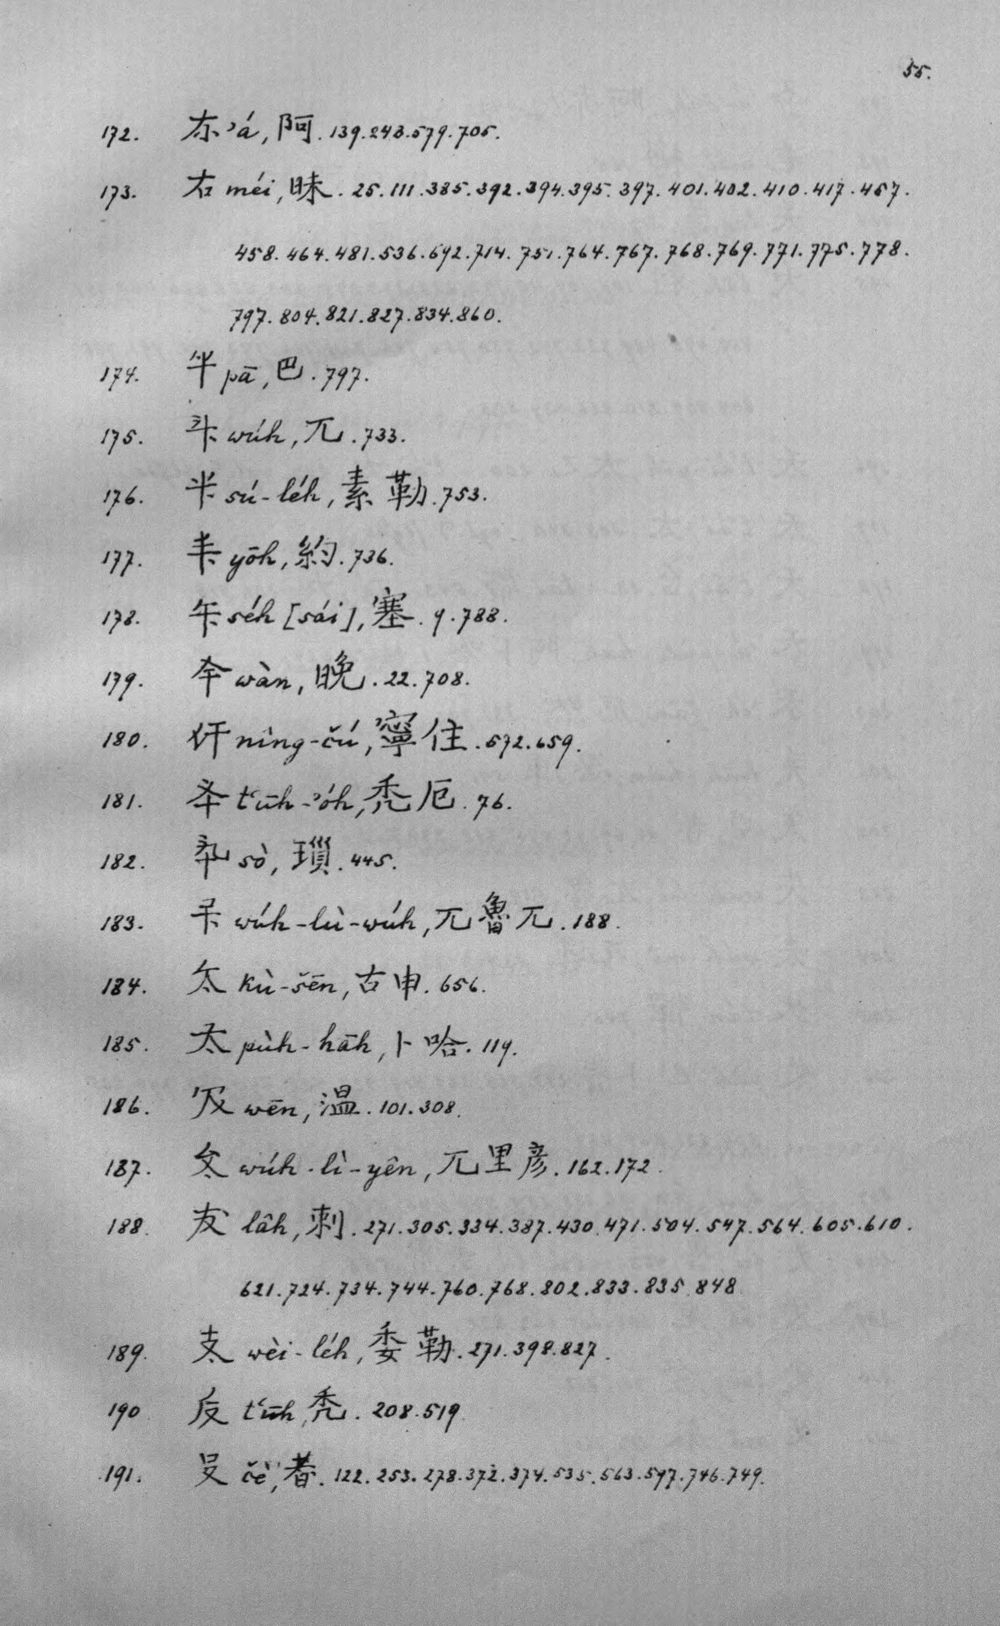 55.
172. ’á, 阿. 139.243.579.705.
173. méi, 昧. 25.111.385.392.394.395.397.401.402.410.417.457.
458.464.481.536.692.714.751.764.767.768.769.771.775.778.
797.804.821.827.834.860.
174. pā, 巴. 797.
175. wúh, 兀. 733.
176. sú-léh, 素勒. 753.
177. yōh, 約. 736.
178. séh [sái], 塞. 9.788.
179. wàn, 晚. 22.708.
180. nìng-čú, 寧住. 572.659.
181. t‘ūh-’óh, 禿厄. 76.
182. sò, 瑣. 445.
183. wúh-lù-wúh, 兀魯兀. 188.
184. kù-šēn, 古申. 656.
185. pùh-hāh, 卜哈. 119.
186. wēn, 温. 101.308.
187. wúh-lì-yên, 兀里彥. 162.172.
188. lâh, 剌. 271.305.334.387.430.471.504.547.564.605.610.
621.724.734.744.760.768.802.833.835.848
189. wèi-léh, 委勒. 271.398.827.
190 t‘ūh, 禿. 208.519
191. 者. 122.253.278.372.374.535.563.597.746.749.